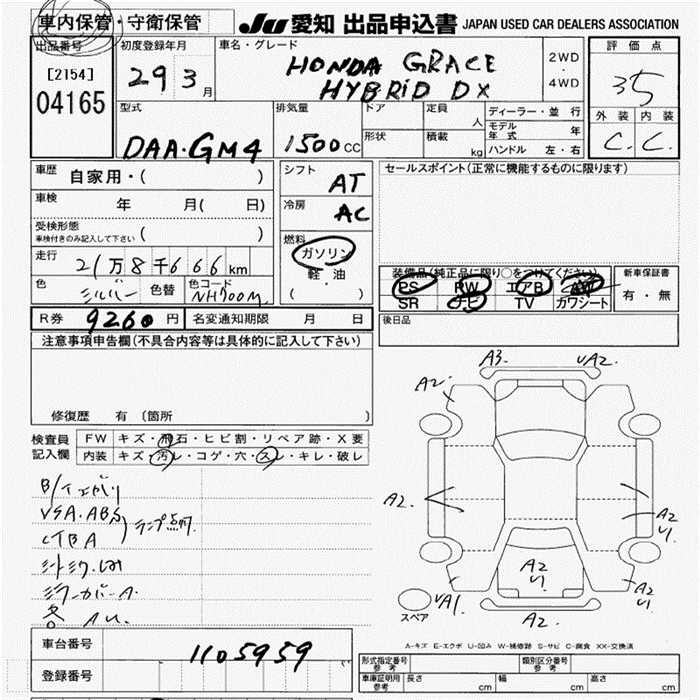 車内保管・守衛保管
JU 愛知 出品申込書 JAPAN USED CAR DEALERS ASSOCIATION
出品番号
[2154]
04165
初度登録年月
29 3月
車名・グレード
HONDA GRACE
HYBRID DX
2WD
・
4WD
評価点
3.5
外装 内装
C. C.
型式
DAA・GM4
排気量
1500cc
ドア
形状
定員 人
積載 kg
ディーラー・並行
モデル年式 年
ハンドル 左・右
車歴
自家用・( )
車検 年 月( 日)
受検形態
車検付きのみ記入して下さい( )
走行
21万8千666km
色 シルバー 色替 色コード NH700M
シフト
AT
冷房
AC
燃料
ガソリン
軽油
( )
セールスポイント(正常に機能するものに限ります)
装備品(純正品に限り○をつけてください)
PS PW エアB AW
SR ナビ TV カワシート
新車保証書
有・無
R券 9260円 名変通知期限 月 日
後日品
注意事項申告欄(不具合内容等は具体的に記入して下さい)
修復歴 有 (箇所 )
検査員
記入欄
FW キズ・飛石・ヒビ割・リペア跡・X要
内装 キズ・汚レ・コゲ・穴・スレ・キレ・破レ
VSA.ABS
CTBA
ランプ点灯.
ミラーカバーA.
各 AU.
A3. UA2.
A2.
A2.
A2
U1.
A2
U1
A2
U1.
UA1.
A2.
スペア
A-キズ E-エクボ U-凹み W-補修跡 S-サビ C-腐食 XX-交換済
車台番号 1105959
登録番号
形式指定番号
参考
類別区分番号
参考
車庫証明用
参考
長さ cm 幅 cm 高さ cm